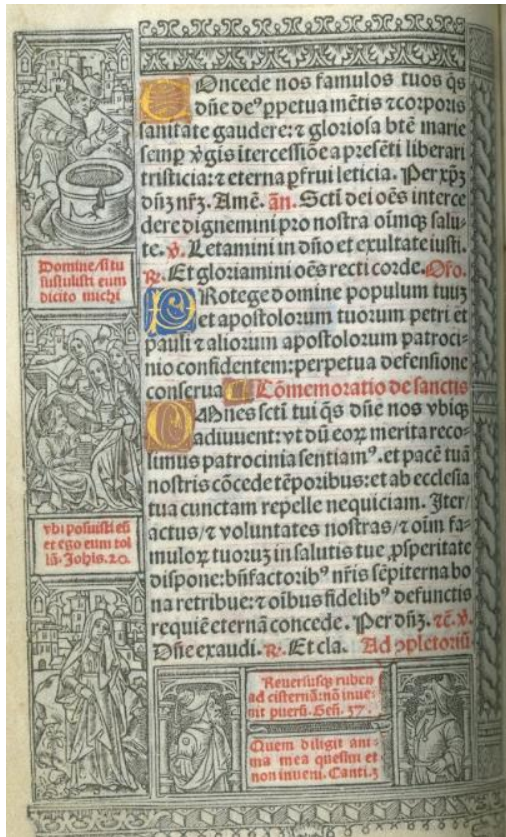 Concede nos famulos tuos q̃s
dñe deꝰ ꝑpetua mẽtis ⁊ corporis
sanitate gaudere: ⁊ gloriosa btẽ marie
semꝑ ṽgis ĩtercessiõe a presẽti liberari
tristicia: ⁊ eterna ꝑfrui leticia. Per xp̃ꝫ
dñꝫ nr̃ꝫ. Amẽ. añ. Scti dei oẽs interce
dere dignemini pro nostra oĩmqꝫ salu-
te. ℣. Letamini in dño et exultate iusti.
℟. Et gloriamini oẽs recti corde. Oro.
PRotege domine populum tuuꝫ
et apostolorum tuorum petri et
pauli ⁊ aliorum apostolorum patroci-
nio confidentem: perpetua defensione
conserua Cõmemoratio de sanctis
OMnes sctĩ tui q̃s dñe nos vbiqꝫ
adiuuent: vt dũ eoꝝ merita reco-
limus patrocinia sentiamꝰ. et pacẽ tuã
nostris cõcede tẽporibus: et ab ecclesia
tua cunctam repelle nequiciam. Iter/
actus/ ⁊ voluntates nostras/ ⁊ oĩm fa-
muloꝝ tuoruꝫ in salutis tue ꝓsperitate
dispone: bñfactoribꝰ nr̃is sẽpiterna bo
na retribue: ⁊ oĩbus fidelibꝰ defunctis
requiẽ eternã concede. Per dñꝫ. ⁊c̃. ℣.
Dñe exaudi. ℟. Et cla. Ad ꝯpletoriũ
Domine/ si tu
sustulisti eum
dicito michi
vbi posuisti eũ
et ego eum tol
lã. Johis. 20
Reuersusqꝫ ruben
ad cisternã: nõ inue-
nit puerũ. Geñ. 37.
Quem diligit ani-
ma mea quesiui et
non inueni. Canti. 3